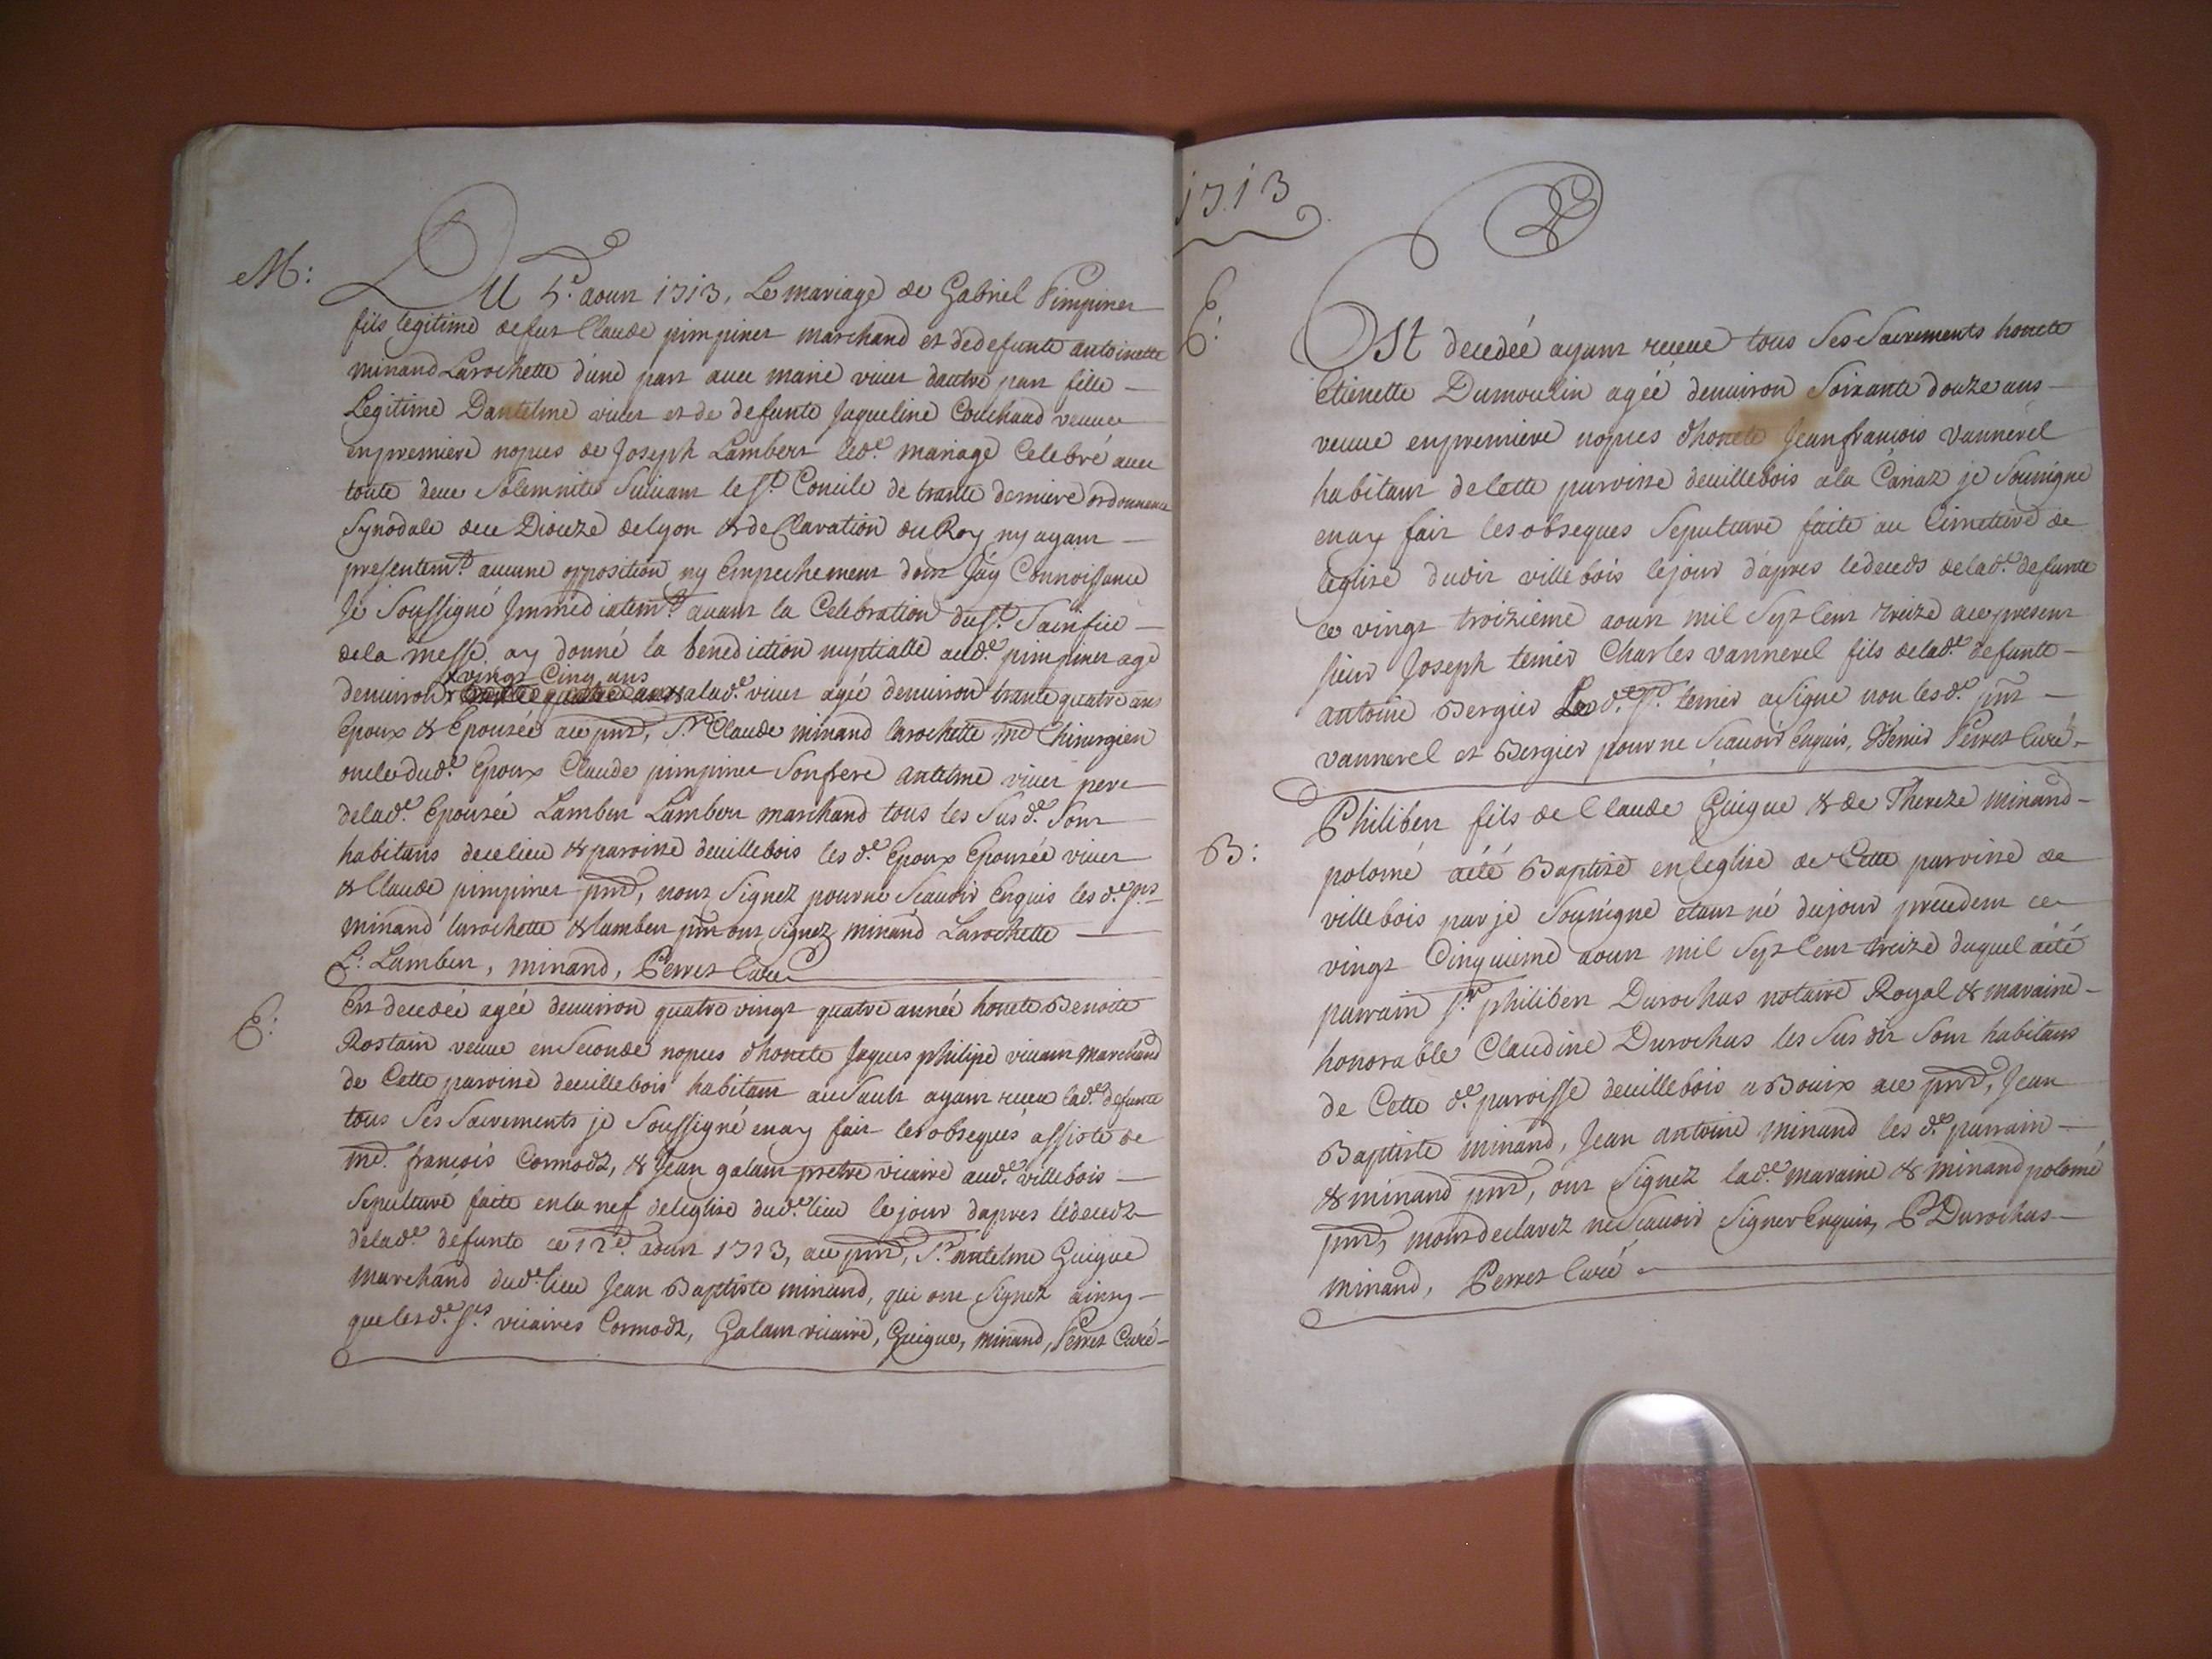 M:
Du 5.e aoust 1713, Le mariage de Gabriel Pimpinet
fils legitime de fut Claude pimpinet marchand et de defunte antoinette
minand Larochette d'une part avec marie vivier d'autre part fille
Legitime Dantelme vivier et de defunte Jaqueline Couchaud veuve
en premiere nopces de Joseph Lambert led.e mariage Celebré avec
toute deue Solemnité Suivant le St. Concile de trante derniere ordonnance
Synodale deu Dioceze de lyon & de Claration du Roy ny ayant
presentemt. aucune opposition ny Empechement dont J'ay Connoissance
Je Soussigné Immediatemt. avant la Celebration du St. Sacrifice
de la messe, ay donné la benediction nuptialle aud.e pimpinet agé
x vingt Cinq ans
denviron & a lad.e vivier agée denviron trante quatre ans
Epoux & Epousée ace pnts, Sr. Claude minand larochette me Chirurgien
oncle dud.e Epoux Claude pimpinet Son frere antelme vivier pere
de lad.e Epousée Lambert Lambert marchand tous les Susd.e Sont
habitans de ce lieu & paroisse de villebois les d.e Epoux Epousée vivier
& Claude pimpinet pnts, nont Signez pour ne Scavoir Enquis les d.e Srs
minand larochette & lambert pnt ont Signez minand Larochette
L: Lambert, minand, Perret Curé
E:
Est decedée agée denviron quatre vingt quatre année honete Benoite
Rostain veuve en Seconde nopces d'honete Jaques philipe vivant marchand
de Cette paroisse de villebois habitant au Sault ayant receu lad.e defunte
tous Ses Sacrements je Soussigné en ay fait les obseques assisté de
me. francois Cormodz, & Jean galant pretre vicaire aud.e villebois
Sepulture faite en la nef de leglise dud.e lieu le jour d'apres le decedz
de lad.e defunte ce 12.e aoust 1713, ace pnts, Sr. antelme Guigue
marchand dud.e lieu Jean Baptiste minand, qui ont Signez ainsy
que les d.e Srs. vicaires Cormodz, Galant vicaire, Guigue, minand, Perret Curé
1713
E:
Est decedée ayant receue tous Ses Sacrements honete
Etienette Dumoulin agée denviron Soixante douze ans
veuve en premiere nopces d'honete Jean francois vannerel
habitant de Cette paroisse de villebois a la Cariaz je Sousigne
en ay fait les obseques Sepulture faite au Cimettire de
leglise dudit villebois le jour d'apres le deceds de lad.e defunte
ce vingt troizieme aoust mil Sept Cent treize ace present
sieur Joseph tenier Charles vannerel fils de lad.e defunte
antoine Bergier Led.e Sr. tenier a Signe non les d.e pnt
vannerel et Bergier pour ne Scavoir Enquis, JTenier Perret Curé
B:
Philibert fils de Claude Guigue & de Thereze minand
polomé a été Baptisé en l'eglise de Cette paroisse de
villebois par je Sousigné etant né du jour precedent ce
vingt Cinquieme aoust mil Sept Cent treize duquel a été
parrain Sr. philibert Durochas notaire Royal & maraine
honorable Claudine Durochas les Sus dit Sont habitans
de Cette d.e paroisse de villebois a Bouix ace pnts, Jean
Baptiste minand, Jean antoine minand les d.e parrain
& minand pnts, ont Signez lad.e maraine & minand polomé
pnts, mont declarez ne Scavoir Signer Enquis, P Durochas
minand, Perret Curé